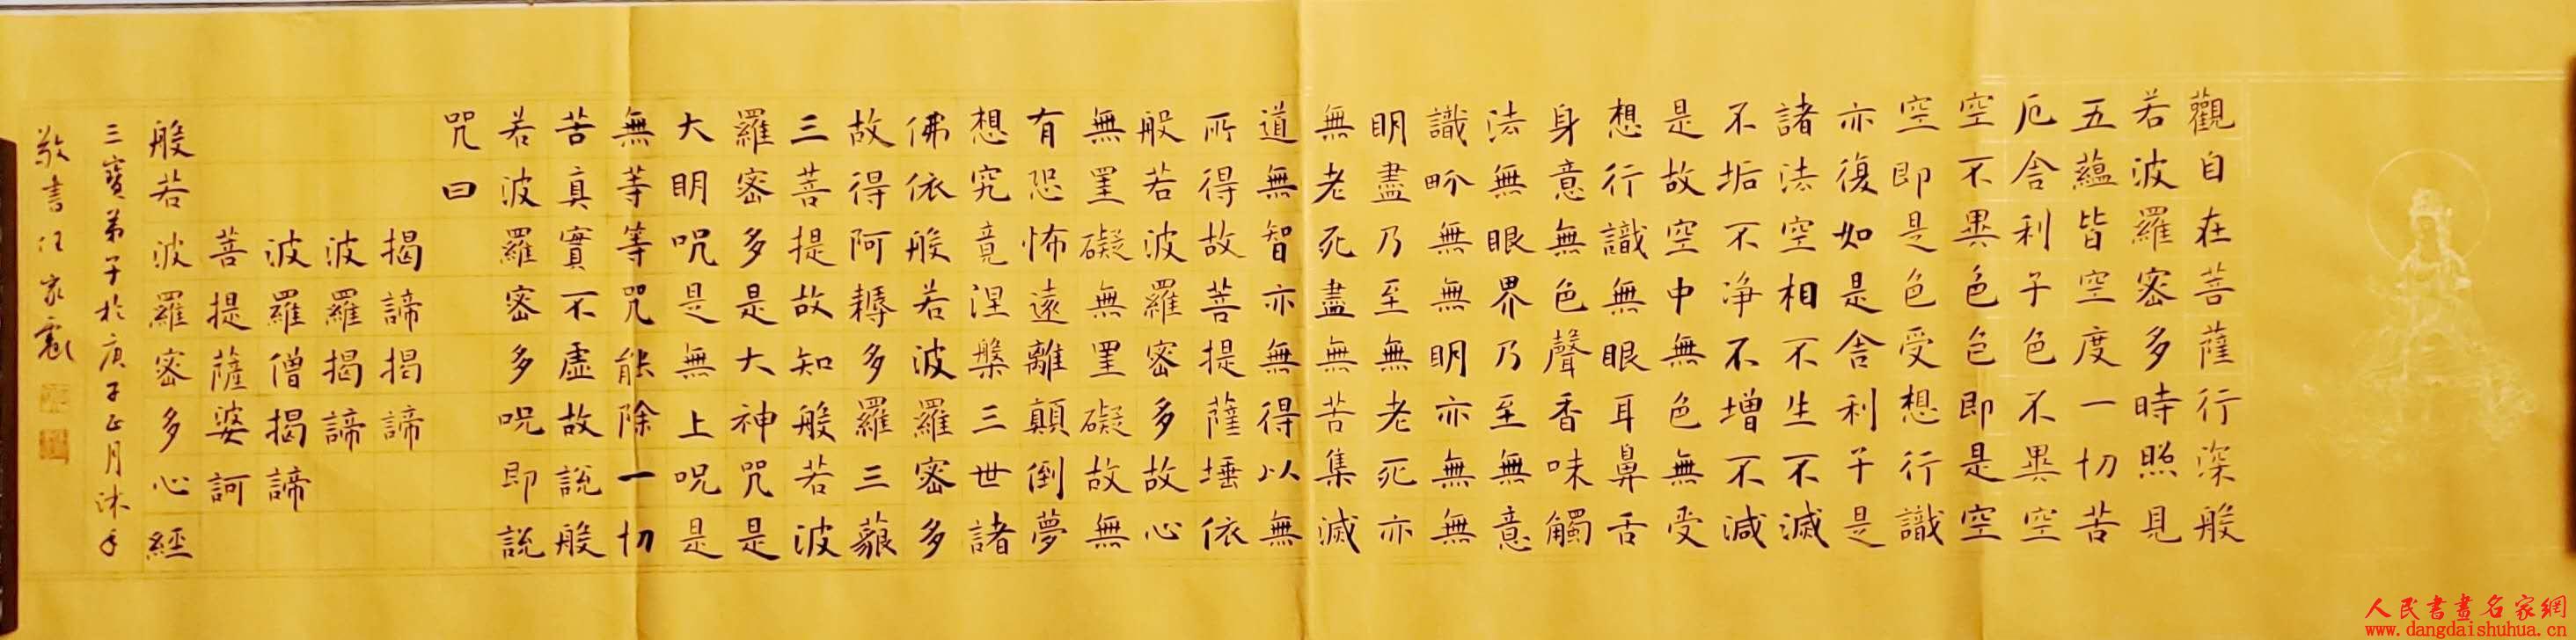 觀自在菩薩行深般
若波羅密多時照見
五蘊皆空度一切苦
厄舍利子色不異空
空不異色色即是空
空即是色受想行識
亦復如是舍利子是
諸法空相不生不滅
不垢不净不增不減
是故空中無色無受
想行識無眼耳鼻舌
身意無色聲香味觸
法無眼界乃至無意
識畍無無明亦無無
明盡乃至無老死亦
無老死盡無苦集滅
道無智亦無得以無
所得故菩提薩埵依
般若波羅密多故心
無罣礙無罣礙故無
有恐怖遠離顛倒夢
想究竟涅槃三世諸
佛依般若波羅密多
故得阿耨多羅三藐
三菩提故知般若波
羅密多是大神咒是
大明呪是無上呪是
無等等咒能除一切
苦真實不虛故說般
若波羅密多呪即說
咒曰
揭諦揭諦
波羅揭諦
波羅僧揭諦
菩提薩婆訶
般若波羅密多心經
三寶弟子於庚子正月沐手
敬書任家
人民書畫名家網
www.dangdaishuhua.cn